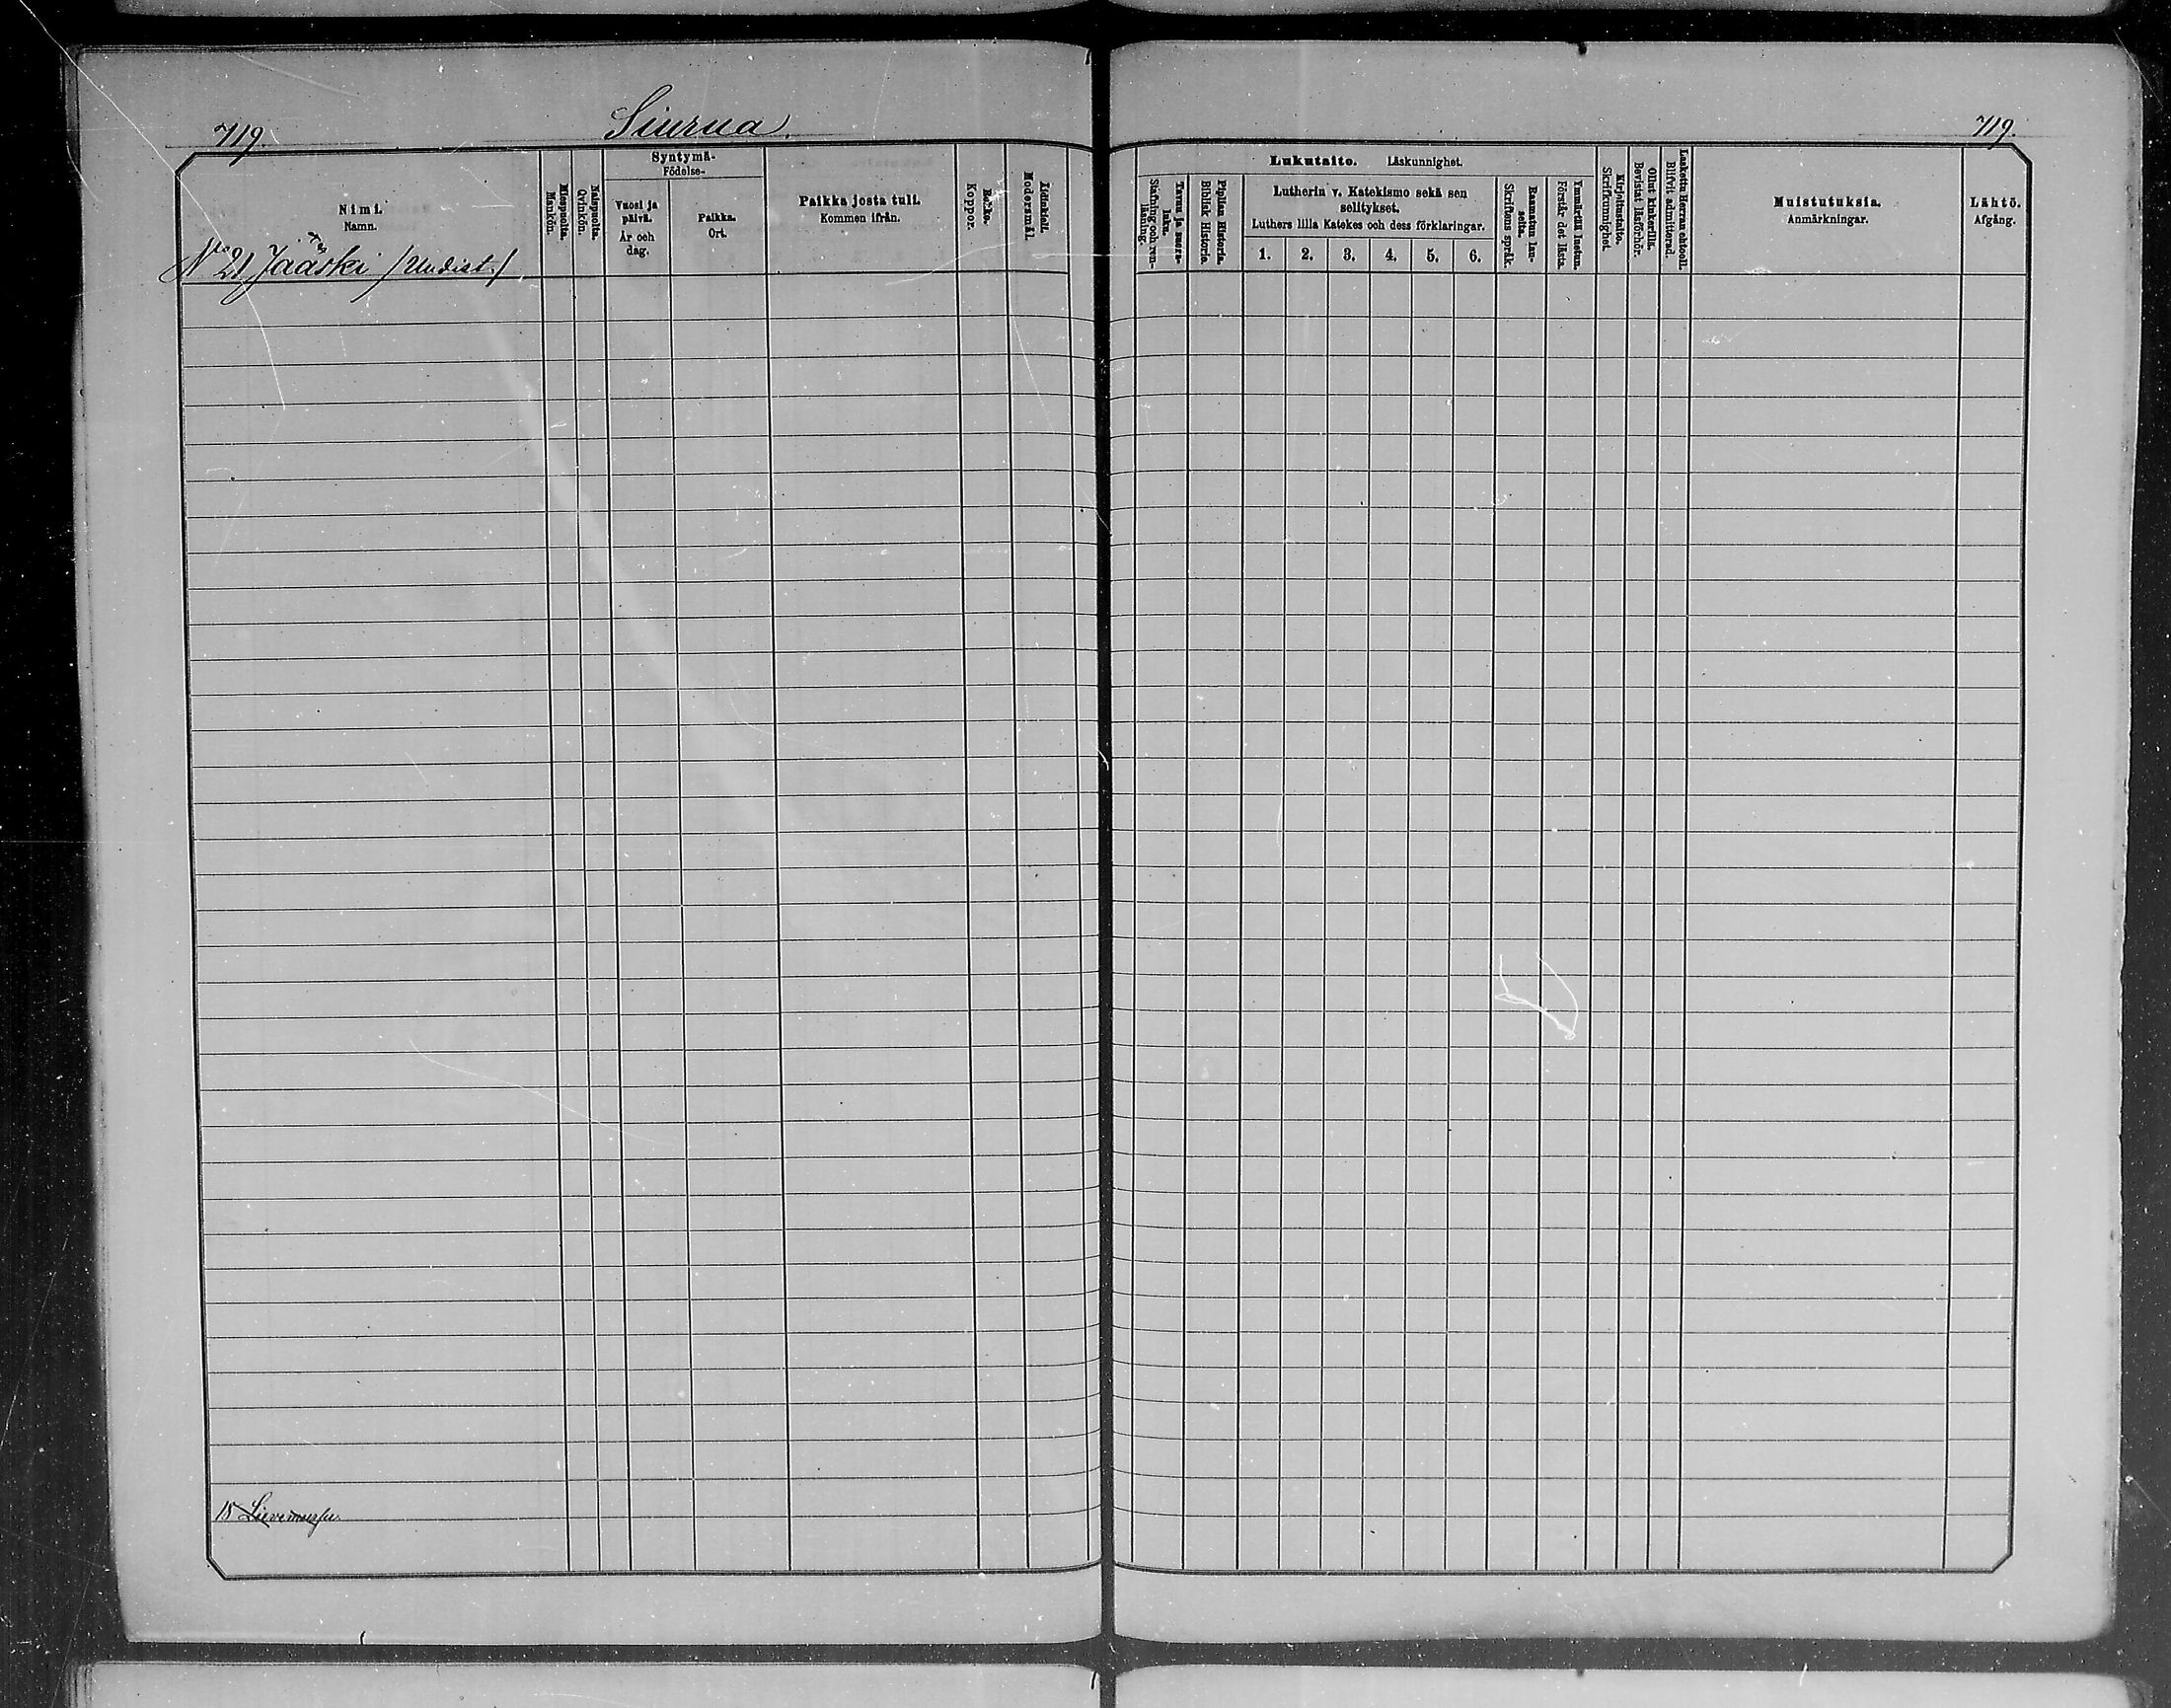 719.
Siurua.
719.
Nimi.
Namn.
Miespuolta.
Mankön.
Naispuolta.
Qvinkön.
Syntymä-
Födelse-
Vuosi ja
päivä.
År och
dag.
Paikka.
Ort.
Paikka josta tuli.
Kommen ifrån.
Rokko.
Koppor.
Äidinkieli.
Modersmål.
Lukutaito. Läskunnighet.
Tavuu ja suora-
luku.
Stafning och ren-
läsning.
Piplian Historia.
Biblisk Historie.
Lutherin v. Katekismo sekä sen
selitykset.
Luthers lilla Katekes och dess förklaringar.
1. 2. 3. 4. 5. 6.
Raamatun lau-
seita.
Skriftens språk.
Ymmärtää luetun.
Förstår det lästa.
Kirjoitustaito.
Skrifkunnighet.
Ollut kinkerillä.
Bevistat läsförhör.
Laskettu Herran ehtooll.
Blifvit admitterad.
Muistutuksia.
Anmärkningar.
Lähtö.
Afgång.
No 21 Jääski /Uudist./
15 Lievemursu